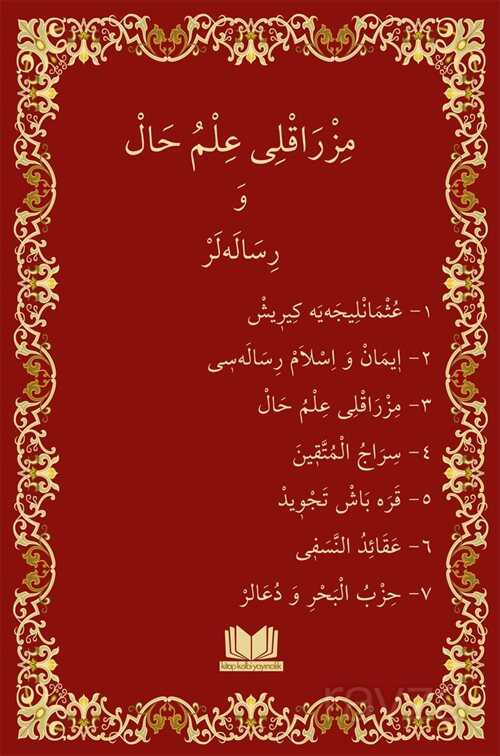 مِزْرَاقْلِى عِلْمُ حَالْ
وَ
رِسَالَەلَرْ
١- عُثْمَانْلِيجَەيَە كِيرِيشْ
٢- اِيمَانْ وَ اِسْلَامْ رِسَالَەسِى
٣- مِزْرَاقْلِى عِلْمُ حَالْ
٤- سِرَاجُ الْمُتَّقِينَ
٥- قَرَە بَاشْ تَجْوِيدْ
٦- عَقَائِدُ النَّسَفِى
٧- حِزْبُ الْبَحْرِ وَ دُعَالَرْ
kitap kalbi yayıncılık